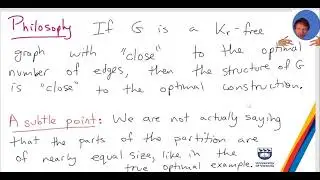 Philosophy If G is a Kr-free
graph with "close" to the optimal
number of edges, then the structure of G
is "close" to the optimal construction.
A subtle point: We are not actually saying
that the parts of the partition are
of nearly equal size, like in the
true optimal example.